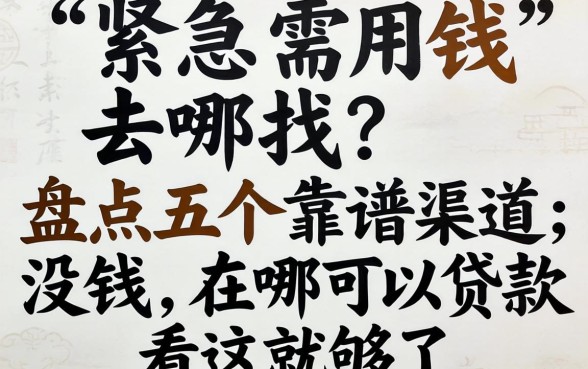 “紧急需用钱”
去哪找？
盘点五个靠谱渠道；
没钱，在哪可以贷款
看这就够了